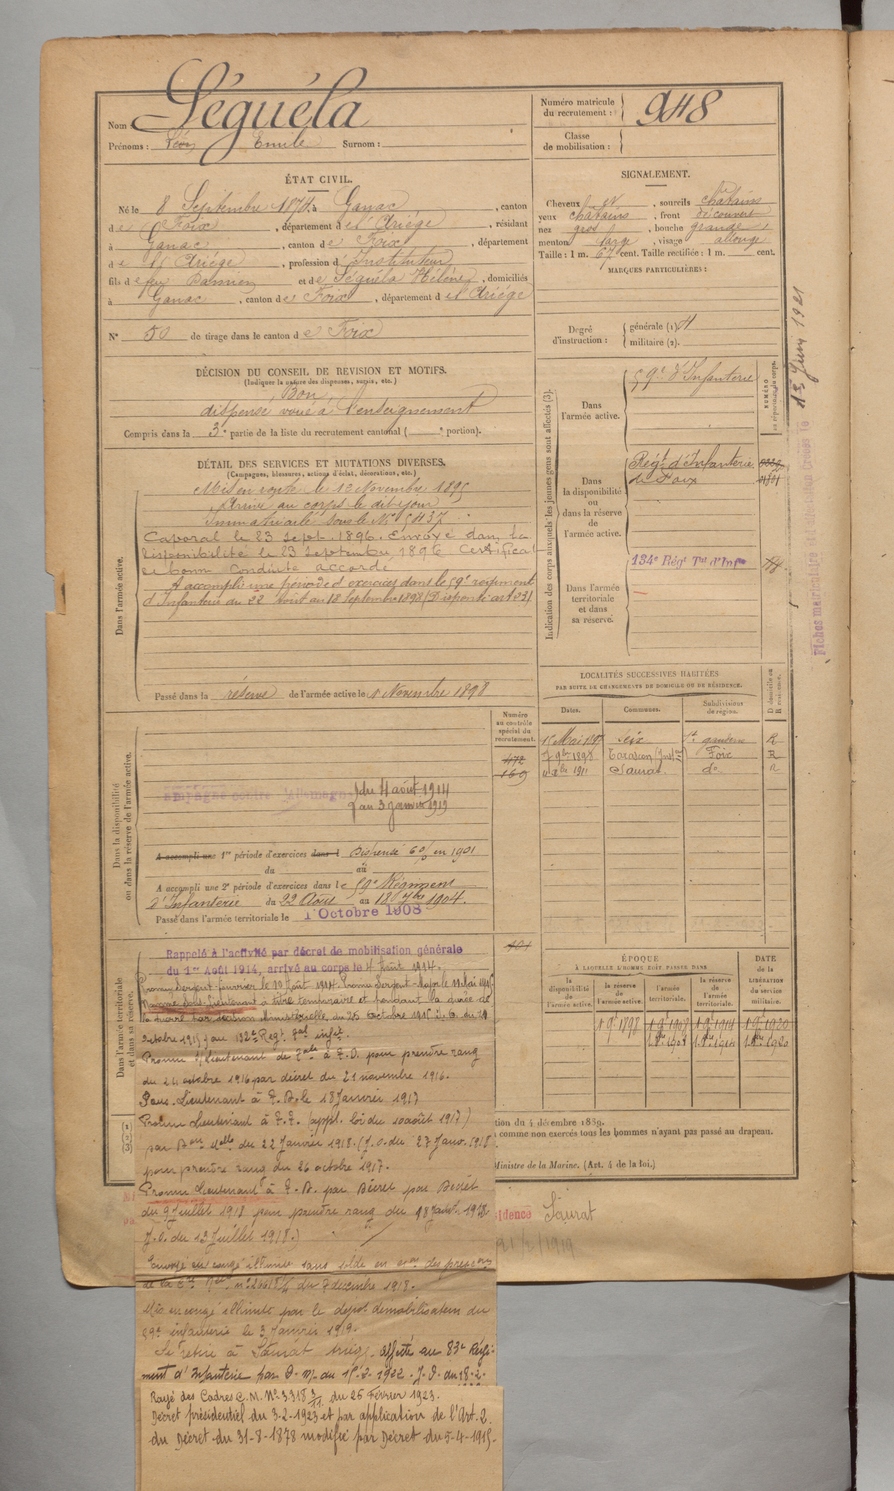 Nom Séguéla
Prénoms : Léon Emile Surnom :
Numéro matricule du recrutement : 948
Classe de mobilisation :
ÉTAT CIVIL.
Né le 8 Septembre 1874, à Ganac, canton
de Foix, département de l'Ariége, résidant
à Ganac, canton de Foix, département
de l'Ariége, profession d'Instituteur
fils de feu Damien et de Séguéla Hélène, domiciliés
à Ganac, canton de Foix, département de l'Ariége
N° 50 de tirage dans le canton de Foix
SIGNALEMENT.
Cheveux et, sourcils chatains
yeux chatains, front découvert
nez gros, bouche grande
menton large, visage allongé
Taille : 1 m. 67 cent. Taille rectifiée : 1 m. cent.
MARQUES PARTICULIÈRES :
Degré d'instruction : générale (1) 4
militaire (2).
DÉCISION DU CONSEIL DE REVISION ET MOTIFS.
(Indiquer la nature des dispenses, sursis, etc.)
Bon
dispensé voué à l'enseignement
Compris dans la 3e partie de la liste du recrutement cantonal ( e portion).
DÉTAIL DES SERVICES ET MUTATIONS DIVERSES.
(Campagnes, blessures, actions d'éclat, décorations, etc.)
Dans l'armée active.
Mis en route le 12 Novembre 1895
Arrivé au corps le dit jour
Immatriculé sous le N° 5437
Caporal le 23 Sept. 1896. Envoyé dans la
disponibilité le 23 septembre 1896 Certificat
de bonne conduite accordé
A accompli une période d'exercices dans le 59e régiment
d'Infanterie du 22 Août au 18 Septembre 1898 (Dispensé art 23)
Passé dans la réserve de l'armée active le 1 Novembre 1898
Indication des corps auxquels les jeunes gens sont affectés (3).
Dans l'armée active.
59e d'Infanterie
NUMÉRO
Dans la disponibilité ou dans la réserve de l'armée active.
Régt d'Infanterie
de Foix
Dans l'armée territoriale et dans sa réserve.
134e Régt Tal d'Infie
LOCALITÉS SUCCESSIVES HABITÉES
PAR SUITE DE CHANGEMENTS DE DOMICILE OU DE RÉSIDENCE.
Dates. Communes. Subdivisions de région. D domicile ou R résidence.
15 Mai 1897 Seix St gaudens R
7 9bre 1898 Tarascon Foix R
1911 Saurat do R
Numéro au contrôle spécial du recrutement.
472
169
Dans la disponibilité ou dans la réserve de l'armée active.
Campagne contre l'Allemagne du 4 août 1914
au 3 janvier 1919
A accompli une 1re période d'exercices dans l Dispensé en 1901
du au
A accompli une 2e période d'exercices dans le 59e Régiment
d'Infanterie du 22 Août au 18 7bre 1904.
Passé dans l'armée territoriale le 1 Octobre 1908
Dans l'armée territoriale et dans sa réserve.
Rappelé à l'activité par décret de mobilisation générale
du 1er Août 1914, arrivé au corps le 4 Août 1914.
Promu Sergent-fourrier le 19 Août 1914. Promu Sergent-Major le 19 Mai 1915.
Nommé sous Lieutenant à titre temporaire et pendant la durée de
la guerre par décision Ministérielle du 26 Octobre 1915 J. O. du 29
Octobre 1915 au 132e Régt Tal infie
Promu S/Lieutenant de à T.D. pour prendre rang
du 26 octobre 1916 par décret du 21 novembre 1916.
Promu Lieutenant à T.T. (appl. loi du 10 août 1917)
par Don Melle du 22 Janvier 1918. (J.O. du 27 Janv. 1918)
pour prendre rang du 26 octobre 1917.
Promu Lieutenant à T.D. par Décret
du 9 Juillet 1918 pour prendre rang du 18 Janv. 1918.
J.O. du 13 Juillet 1918.)
Envoyé en congé illimité sans solde en des
du 7 décembre 1918.
Mis en congé illimité par le dépôt démobilisateur du
59e infanterie le 3 Janvier 1919.
Se retire à Saurat Ariège. affecté au 83e Régi-
ment d'Infanterie par D. M. du 15-2-1922. J.O. du 18-2-
Rayé des Cadres C.M. N° 3318 3/11 du 26 Février 1923.
Décret présidentiel du 3-2-1923 et par application de l'Art. 2.
du Décret du 31-8-1878 modifié par Décret du 5-4-1915.
ÉPOQUE
À LAQUELLE L'HOMME DOIT PASSER DANS
DATE de la LIBÉRATION du service militaire.
la disponibilité de l'armée active. la réserve de l'armée active. l'armée territoriale. la réserve de l'armée territoriale.
1 9bre 1898
tion du 4 décembre 1889.
comme non exercés tous les hommes n'ayant pas passé au drapeau.
Ministre de la Marine. (Art. 4 de la loi.)
sidence Saurat
Juin 1921